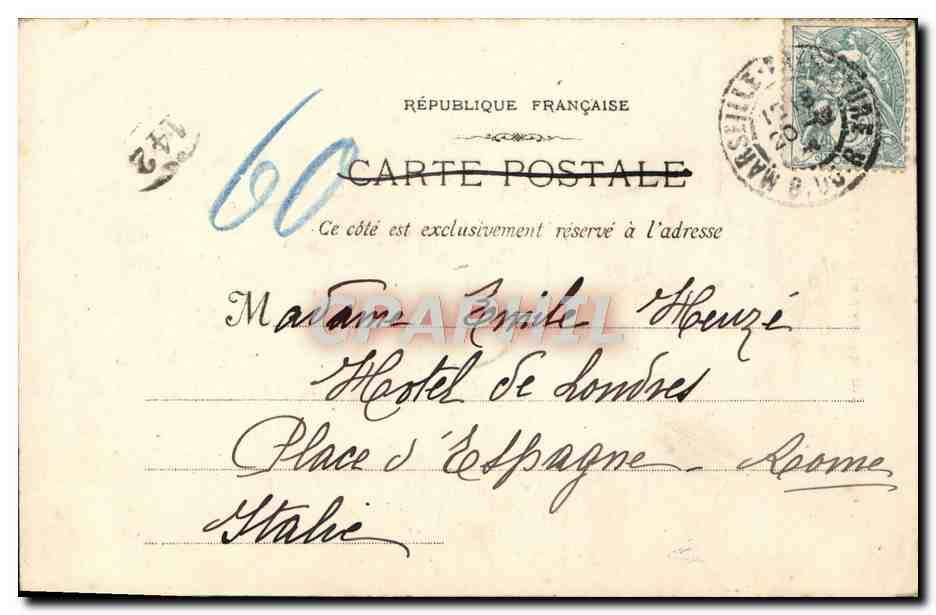 RÉPUBLIQUE FRANÇAISE
142
60
CARTE POSTALE
Ce côté est exclusivement réservé à l'adresse
MARSEILLE
CPAPHIL
Madame Emile Heuzé
Hotel de Londres
Place d'Espagne - Rome
Italie